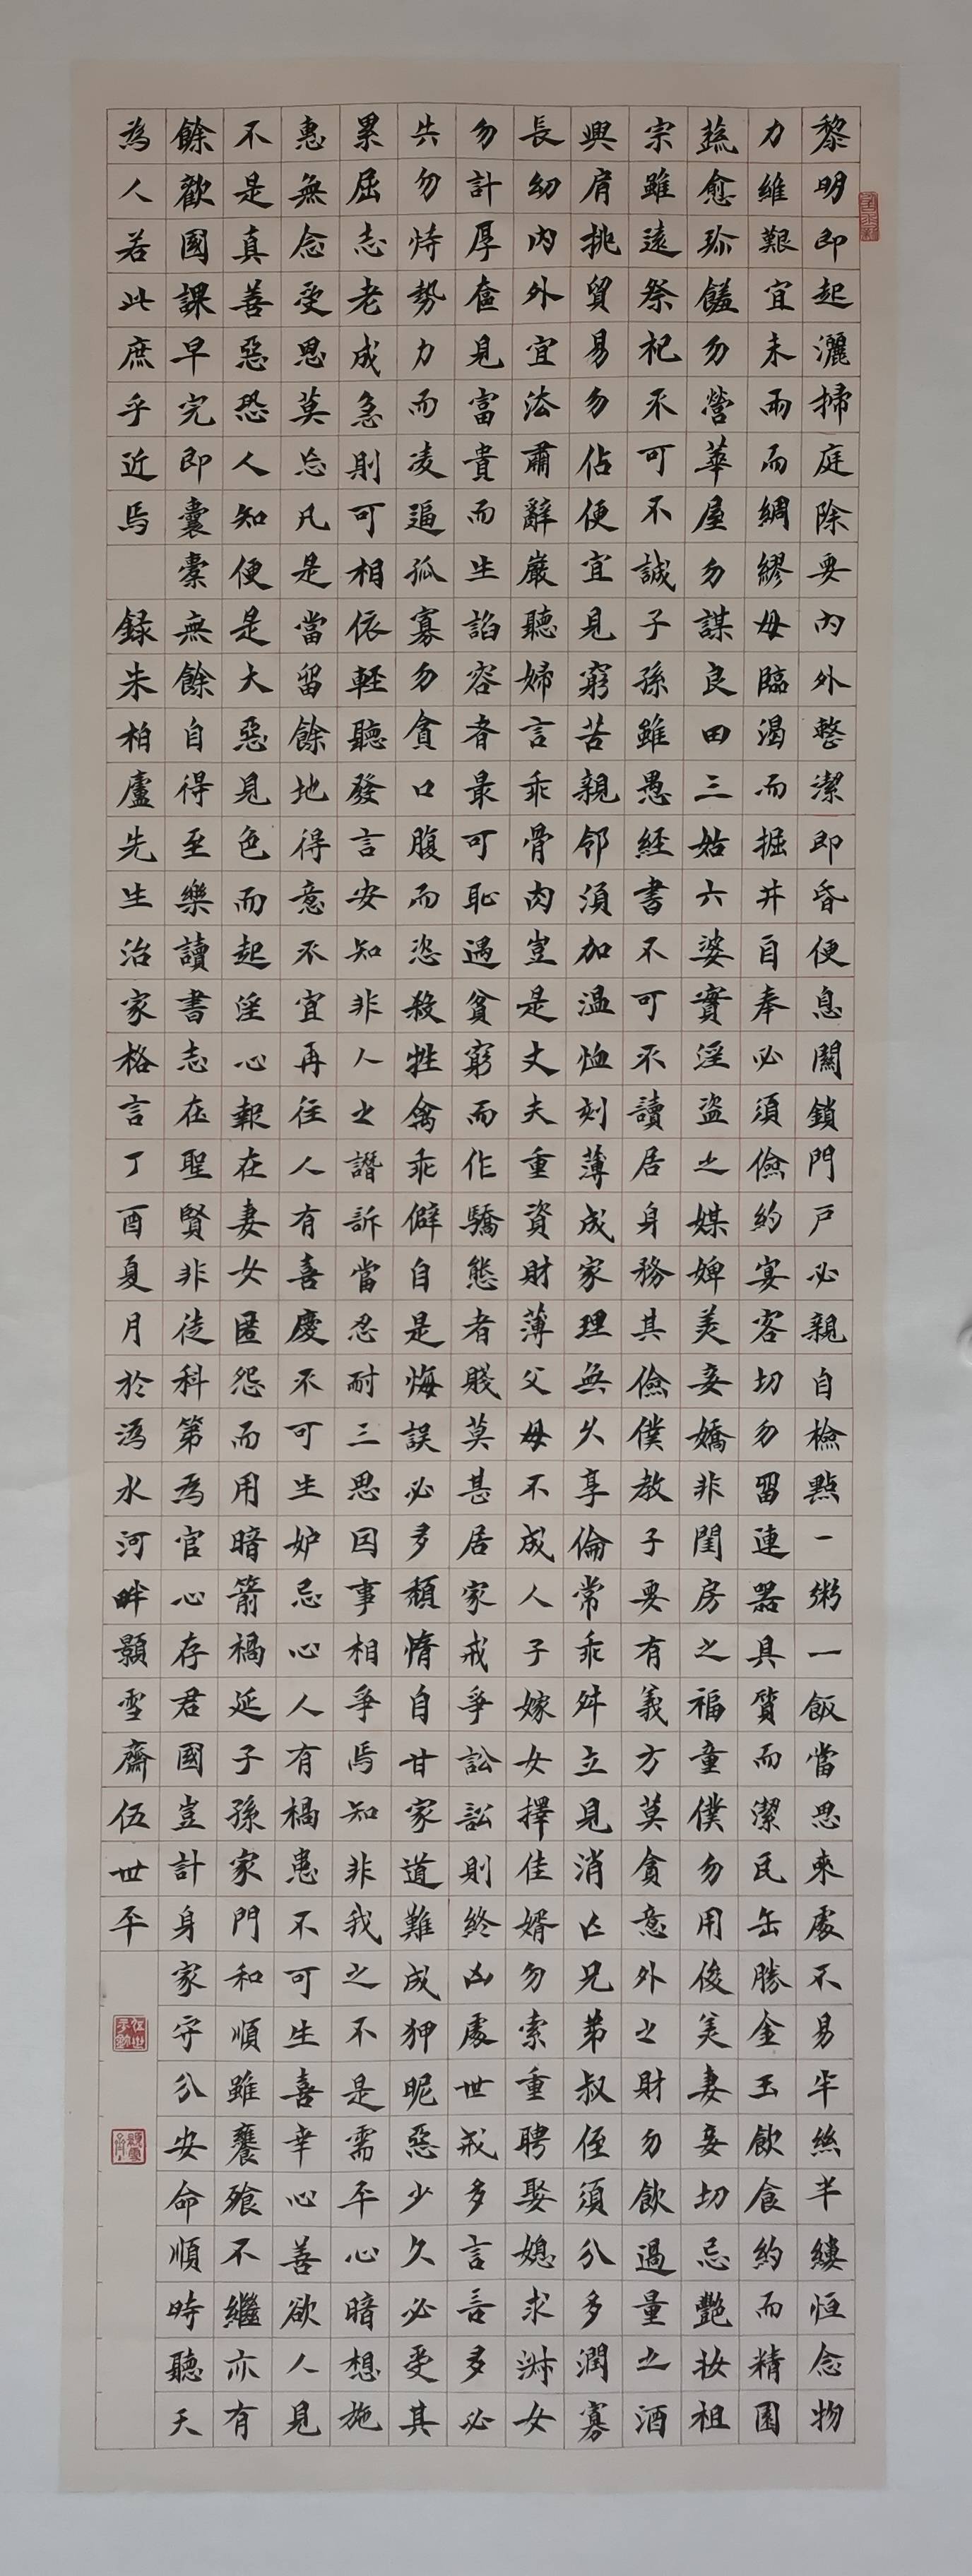 黎明即起灑掃庭除要內外整潔即昏便息關鎖門戶必親自檢點一粥一飯當思來處不易半絲半縷恒念物
力維艱宜未雨而綢繆毋臨渴而掘井自奉必須儉約宴客切勿留連器具質而潔瓦缶勝金玉飲食約而精園
蔬愈珍饈勿營華屋勿謀良田三姑六婆實淫盜之媒婢美妾嬌非閨房之福童僕勿用俊美妻妾切忌艷妝祖
宗雖遠祭祀不可不誠子孫雖愚經書不可不讀居身務其儉僕教子要有義方莫貪意外之財勿飲過量之酒
與肩挑貿易勿佔便宜見窮苦親鄰須加溫恤刻薄成家理無久享倫常乖舛立見消亡兄弟叔侄須分多潤寡
長幼內外宜法肅辭嚴聽婦言乖骨肉豈是丈夫重資財薄父母不成人子嫁女擇佳婿勿索重聘娶媳求淑女
勿計厚奩見富貴而生諂容者最可恥遇貧窮而作驕態者賤莫甚居家戒爭訟訟則終凶處世戒多言言多必
失勿恃勢力而凌逼孤寡勿貪口腹而恣殺牲禽乖僻自是悔誤必多頹惰自甘家道難成狎昵惡少久必受其
累屈志老成急則可相依輕聽發言安知非人之譖訴當忍耐三思因事相爭焉知非我之不是需平心暗想施
惠無念受恩莫忘凡是當留餘地得意不宜再往人有喜慶不可生妒忌心人有禍患不可生喜幸心善欲人見
不是真善惡恐人知便是大惡見色而起淫心報在妻女匿怨而用暗箭禍延子孫家門和順雖饔飧不繼亦有
餘歡國課早完即囊橐無餘自得至樂讀書志在聖賢非徒科第為官心存君國豈計身家守分安命順時聽天
為人若此庶乎近焉 錄朱柏廬先生治家格言丁酉夏月於溈水河畔顥雪齋伍世平